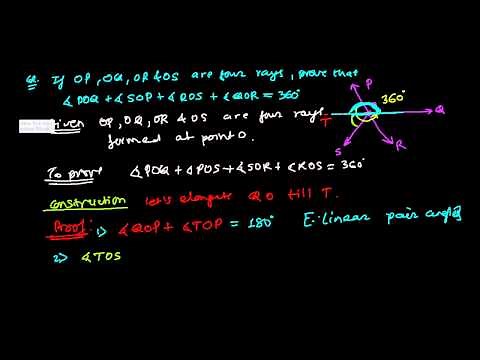 Q. If OP, OQ, OR & OS are four rays, prove that
∡POQ + ∡SOP + ∡ROS + ∡QOR = 360°
Given OP, OQ, OR & OS are four rays
formed at point O.
To prove ∡POQ + ∡POS + ∡SOR + ∡ROS = 360°
Construction Let's elongate QO till T.
Proof: 1) ∡QOP + ∡TOP = 180° [∵ Linear pair angles]
2) ∡TOS
P
360°
T
Q
S
R